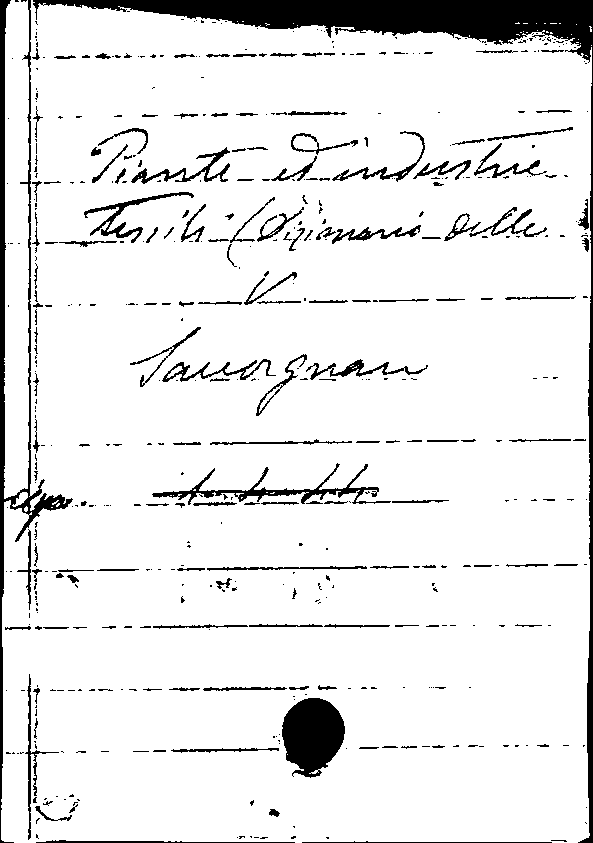 Piante ed industrie
tessili (Dizionario delle
V
Savorgnan